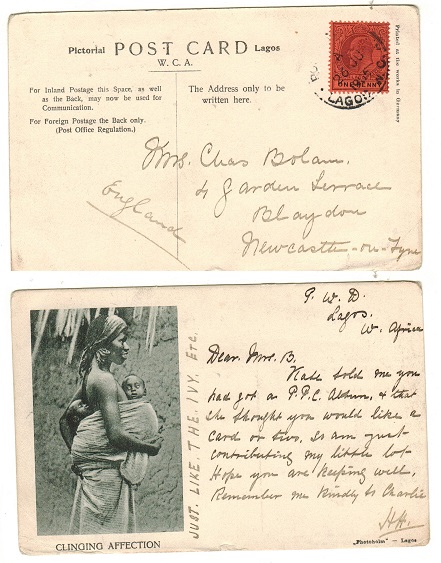 Pictorial POST CARD Lagos
W. C. A.
For Inland Postage this Space, as well
as the Back, may now be used for
Communication.
For Foreign Postage the Back only.
(Post Office Regulation.)
The Address only to be
written here.
ONE PENNY
LAGOS
Printed at the works in Germany
Mrs. Chas Bolam,
4 Garden Terrace
Blaydon
Newcastle-on-Tyne
England
P. W. D.
Lagos.
W. Africa
Dear Mrs. B.
Kate told me you
had got a P.P.C. Album, & that
she thought you would like a
card or two, so am just
contributing my little lot
Hope you are keeping well,
Remember me kindly to Charlie
HH.
JUST. LIKE. THE. IVY. ETC.
CLINGING AFFECTION
„Photoholm" – Lagos